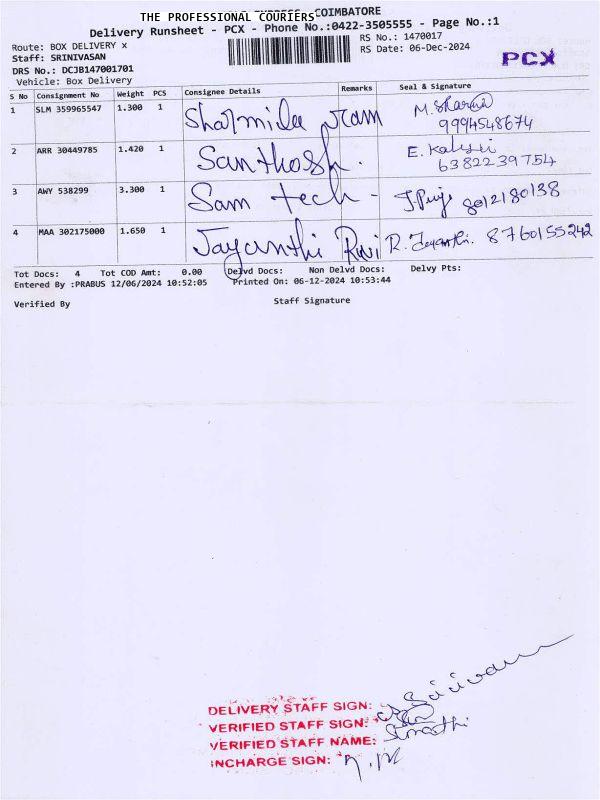 THE PROFESSIONAL COURIERS COIMBATORE
Delivery Runsheet - PCX - Phone No.:0422-3505555 - Page No.:1
Route: BOX DELIVERY x
RS No.: 1470017
Staff: SRINIVASAN
RS Date: 06-Dec-2024
PCX
DRS No.: DCJB147001701
Vehicle: Box Delivery
S No Consignment No Weight PCS Consignee Details Remarks Seal & Signature
1 SLM 359965547 1.300 1 Sharmila ram M. Sharmi
9994548674
2 ARR 30449785 1.420 1 Santhosh. E.
6382239754
3 AWY 538299 3.300 1 Sam tech - 8012180138
4 MAA 302175000 1.650 1 Jayanthi Ravi R. Jayanthi. 8760155242
Tot Docs: 4 Tot COD Amt: 0.00 Delvd Docs: Non Delvd Docs: Delvy Pts:
Entered By :PRABUS 12/06/2024 10:52:05 Printed On: 06-12-2024 10:53:44
Verified By Staff Signature
DELIVERY STAFF SIGN:
VERIFIED STAFF SIGN:
VERIFIED STAFF NAME:
INCHARGE SIGN: